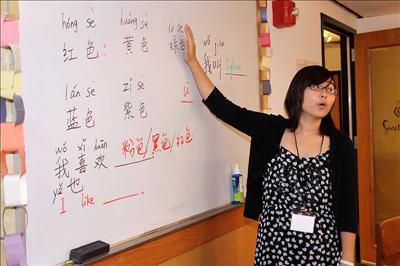 hóng sè huáng sè lù sè
红色: 黄色 绿色 wǒ jiào
我叫
lán sè zǐ sè
蓝色 紫色 ü
wǒ xǐ huān
我喜欢 ____ 粉色/黑色/红色
yě
也
I like ____.